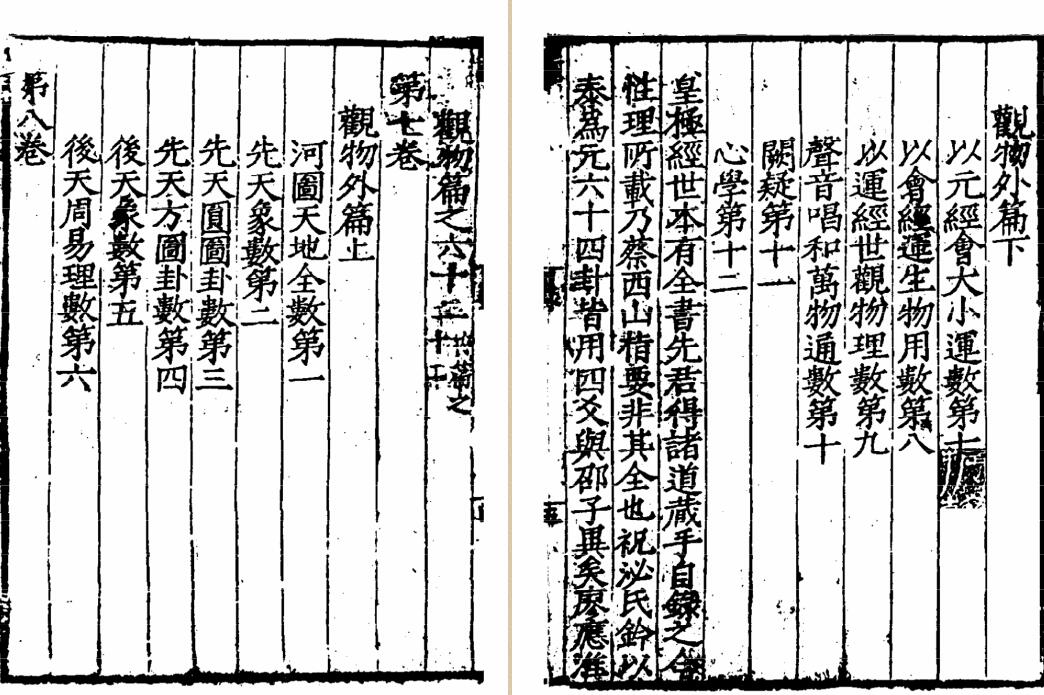 觀物篇之六十二
第七卷
觀物外篇上
河圖天地全數第一
先天象數第二
先天圓圖卦數第三
先天方圖卦數第四
後天象數第五
後天周易理數第六
第八卷
觀物外篇下
以元經會大小運數第七
以會經運生物用數第八
以運經世觀物理數第九
聲音唱和萬物通數第十
闕疑第十一
心學第十二
皇極經世本有全書先君得諸道藏手自錄之今
性理所載乃蔡西山指要非其全也祝泌氏鈐以
泰為元六十四卦皆用四爻與邵子異矣廖應淮